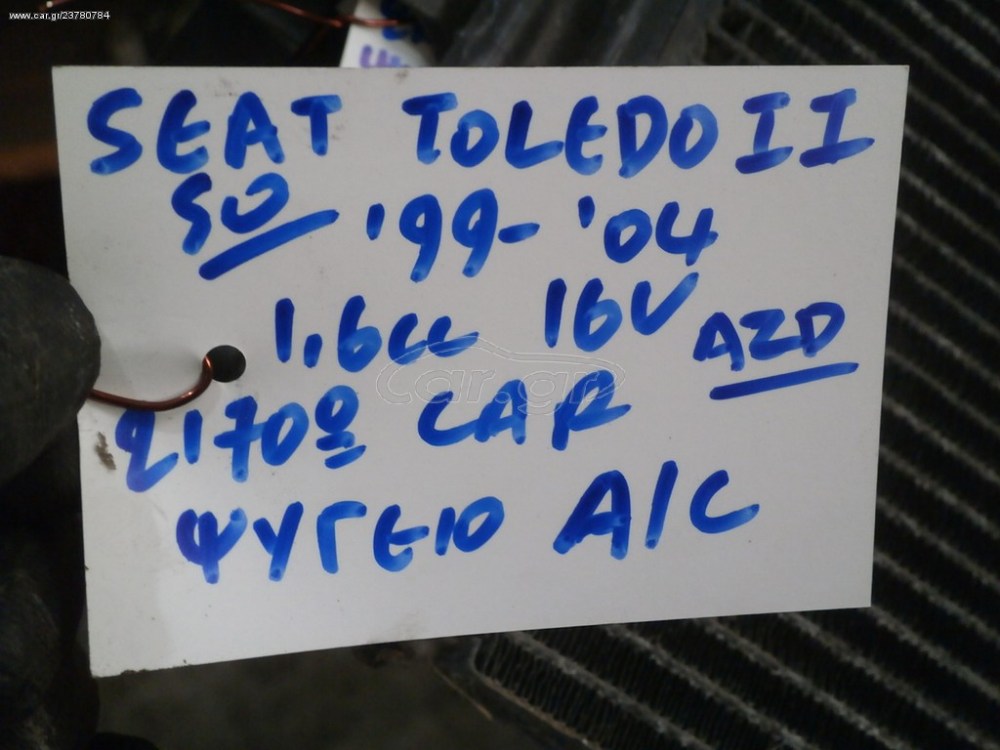 www.car.gr/23780784
SEAT TOLEDO II
SO '99-'04
1,6cc 16V AZD
Car.gr
21700 CAR
ΨΥΓΕΙΟ A/C